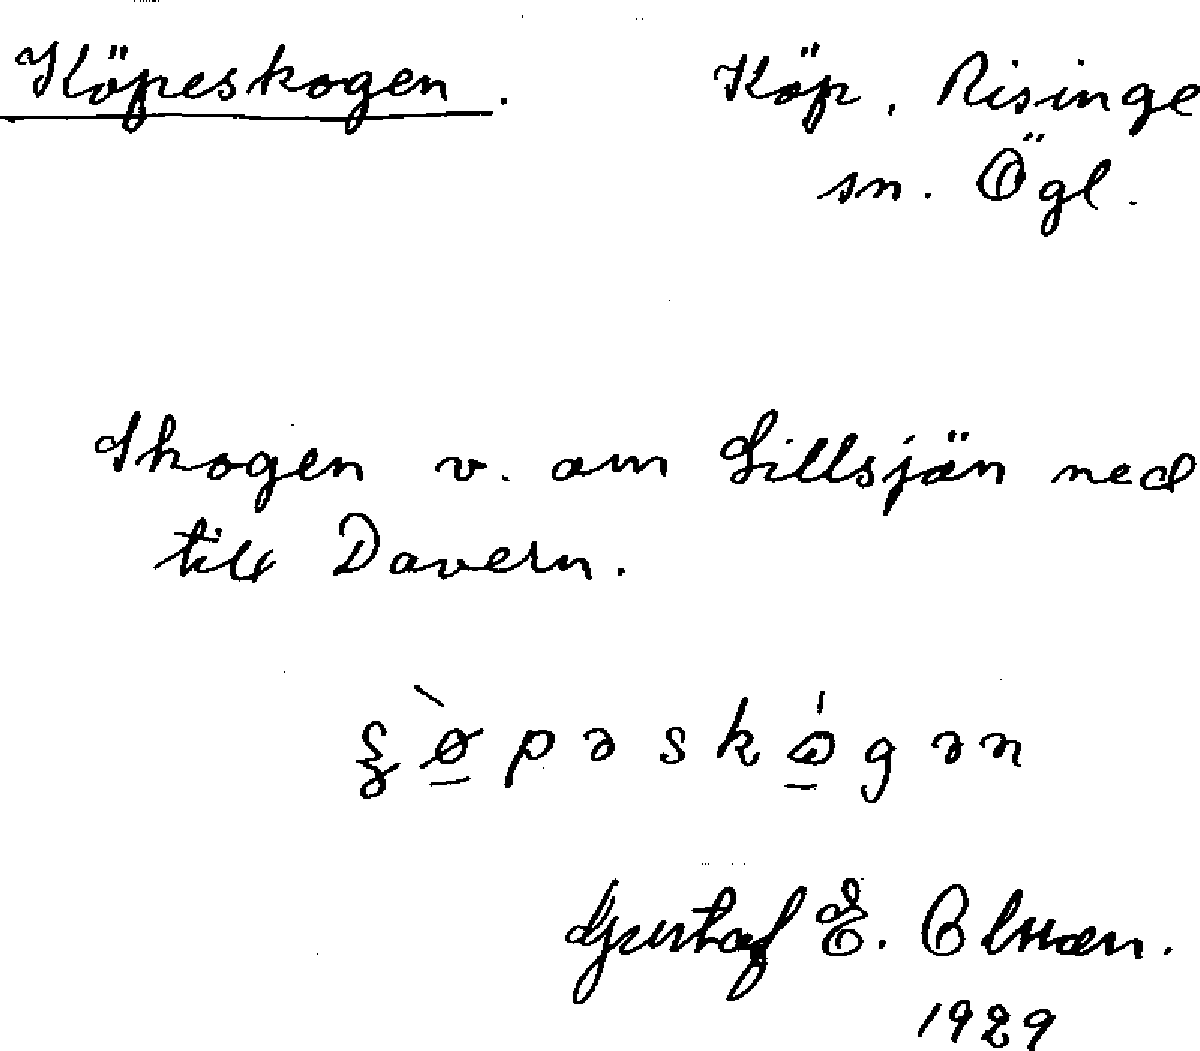 Köpeskogen. Köp, Risinge
sn. Ögl.
Skogen v. om Lillsjön ned
till Davern.
Gustaf E. Olsson.
1929